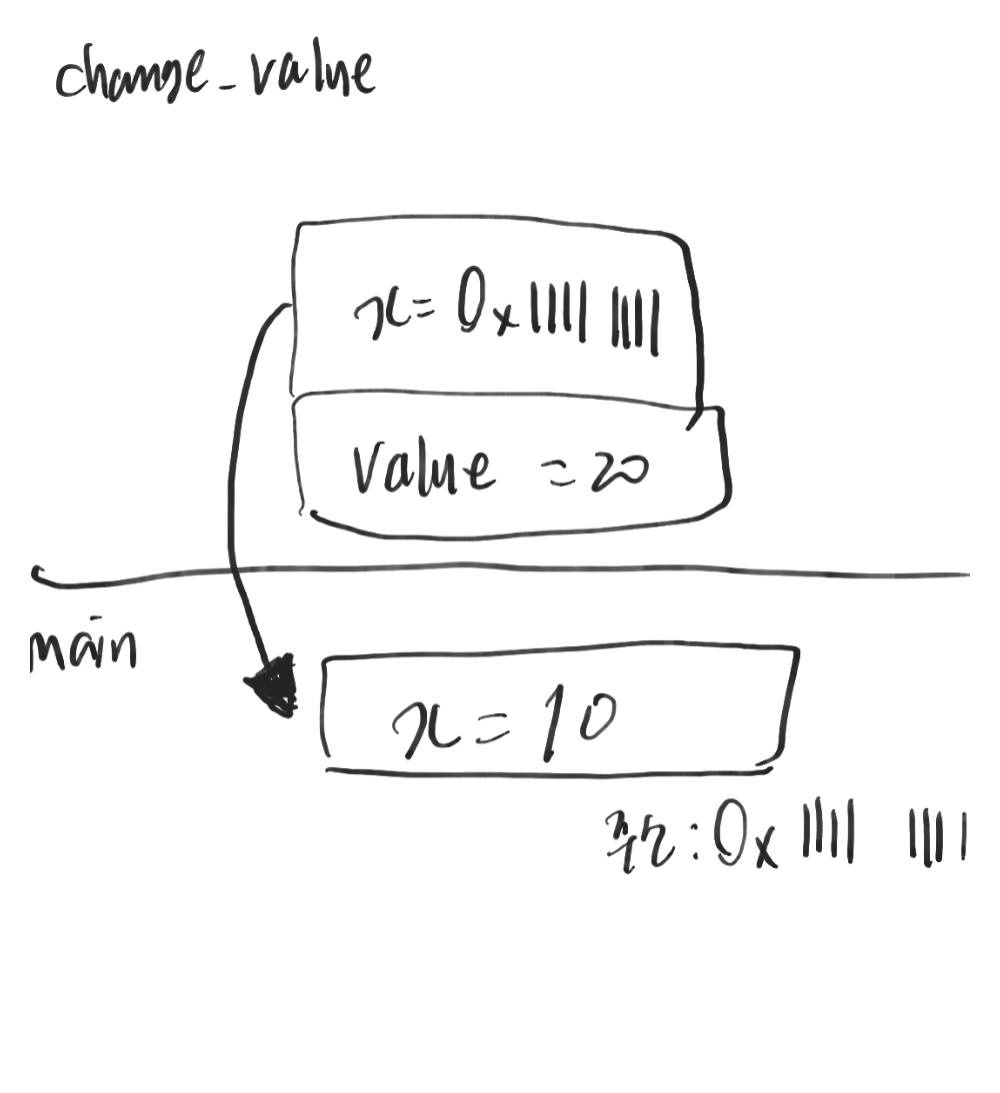 change_value
x = 0x1111 1111
value = 20
main
x = 10
주소 : 0x 1111 1111